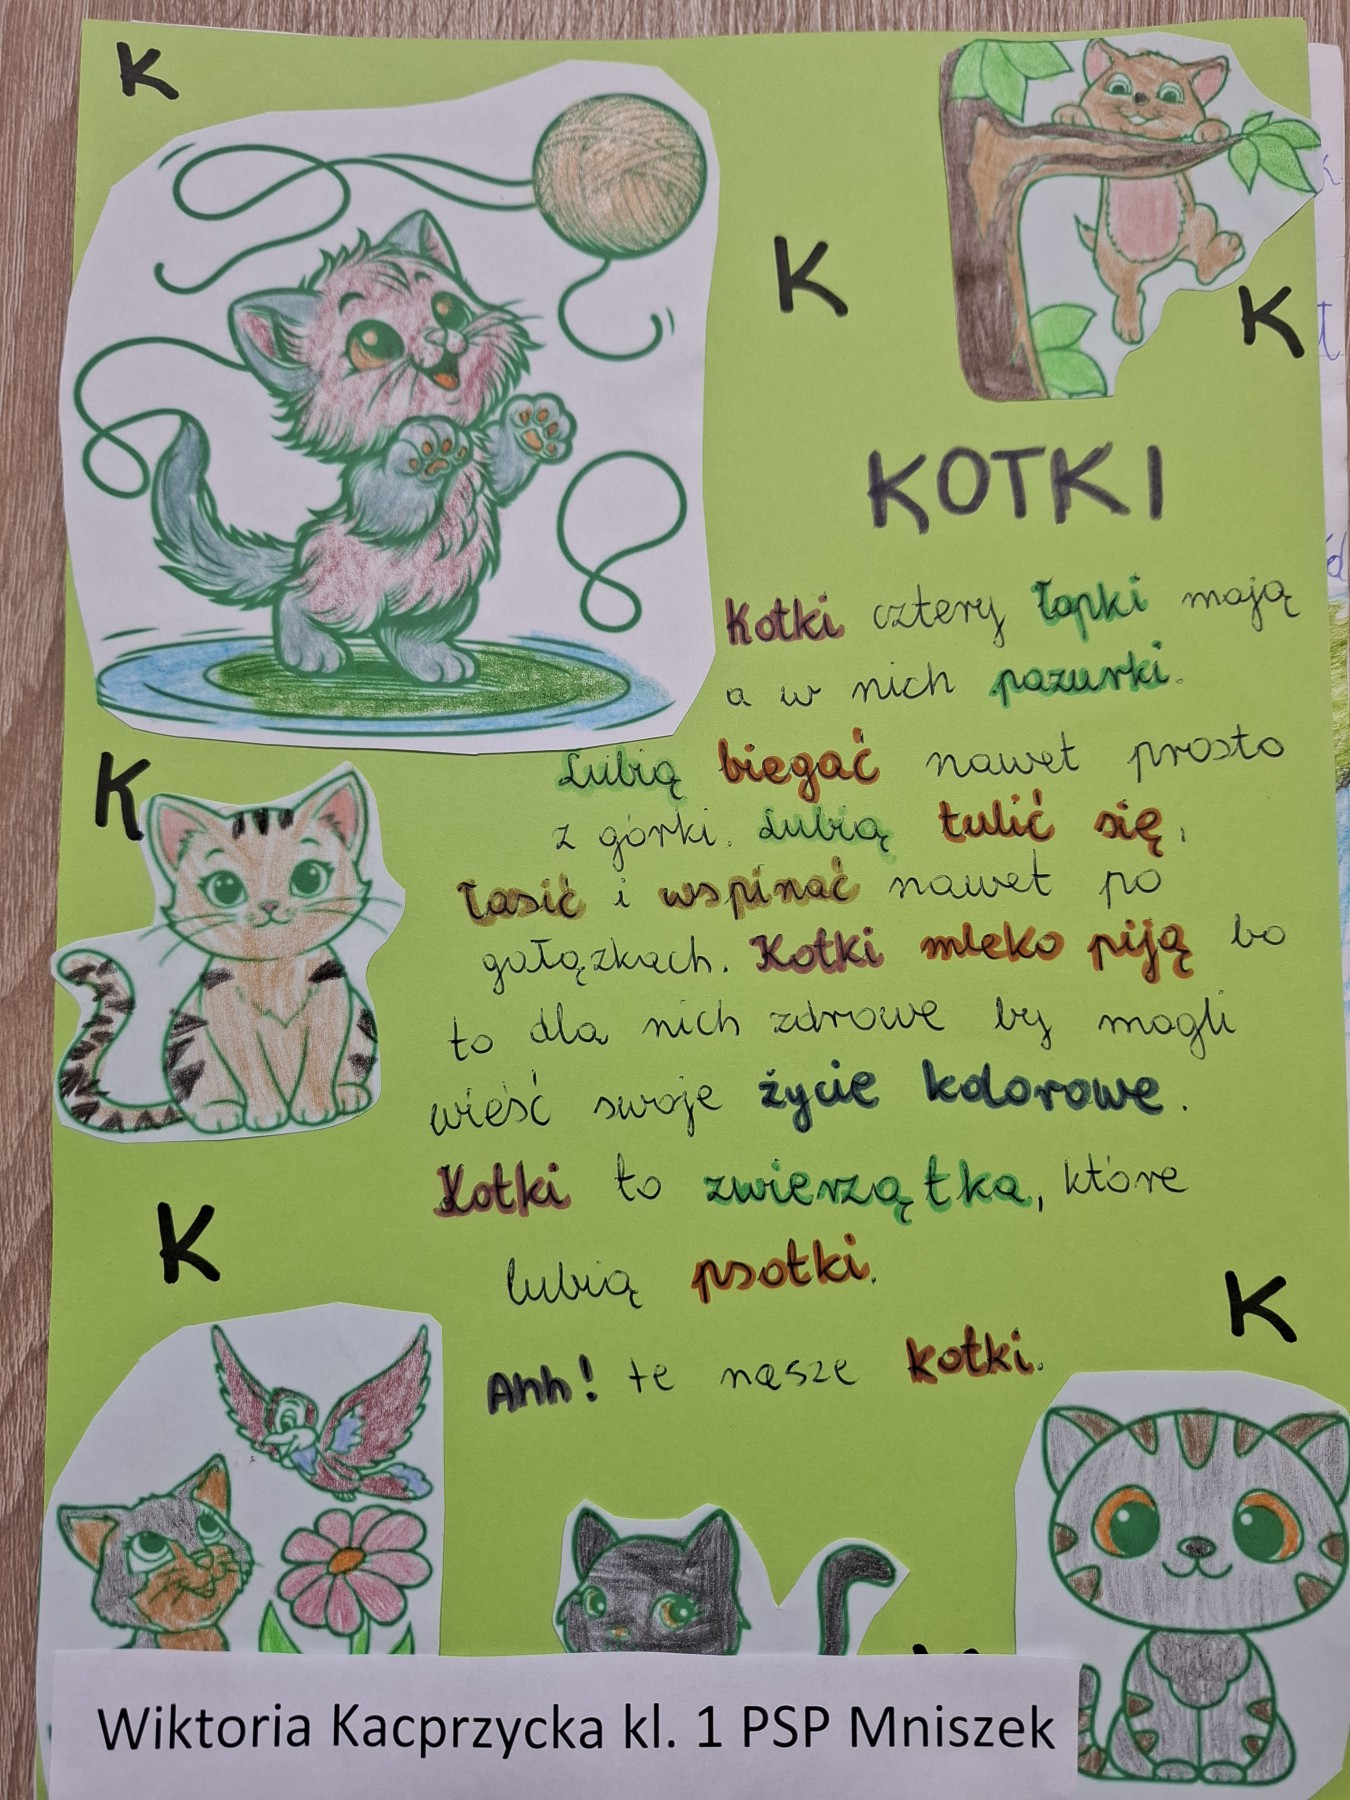 K
K
K
KOTKI
Kotki cztery łapki mają
a w nich pazurki.
Lubią biegać nawet prosto
z górki. Lubią tulić się,
łasić i wspinać nawet po
gałązkach. Kotki mleko piją bo
to dla nich zdrowe by mogli
wieść swoje życie kolorowe.
Kotki to zwierzątka, które
lubią psotki.
Ahh! te nasze kotki.
K
K
K
Wiktoria Kacprzycka kl. 1 PSP Mniszek